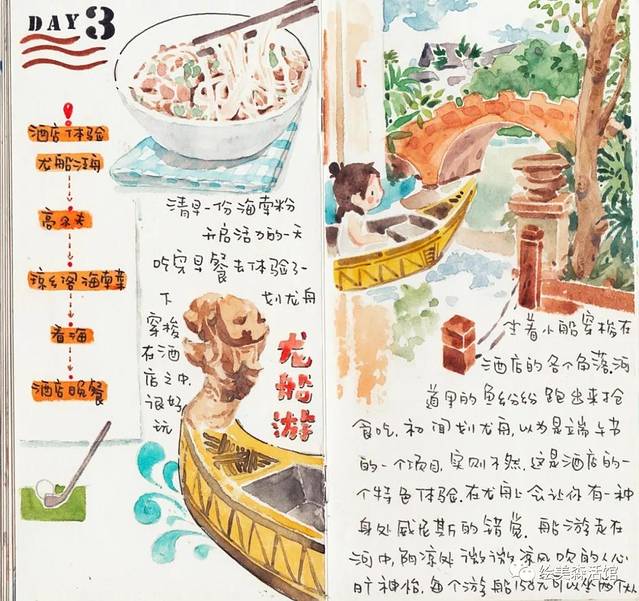 DAY 3
酒店体验
龙船江舟
高尔夫
琼乡阁海南菜
看海
酒店晚餐
清早一份海南粉
开启活力的一天
吃完早餐去体验了一
下 划龙舟
穿梭
在酒
店之中
很好
玩
龙船游
坐着小船穿梭在
酒店的各个角落,河
道里的鱼纷纷跑出来抢
食吃,初闻划龙舟,以为是端午节
的一个项目,实则不然,这是酒店的一
个特色体验.在龙舟上会让你有一种
身处威尼斯的错觉.船游走在
河中,阴凉处微微凉风吹的人心
旷神怡,每个游船158元可以坐两个人
绘美森活馆